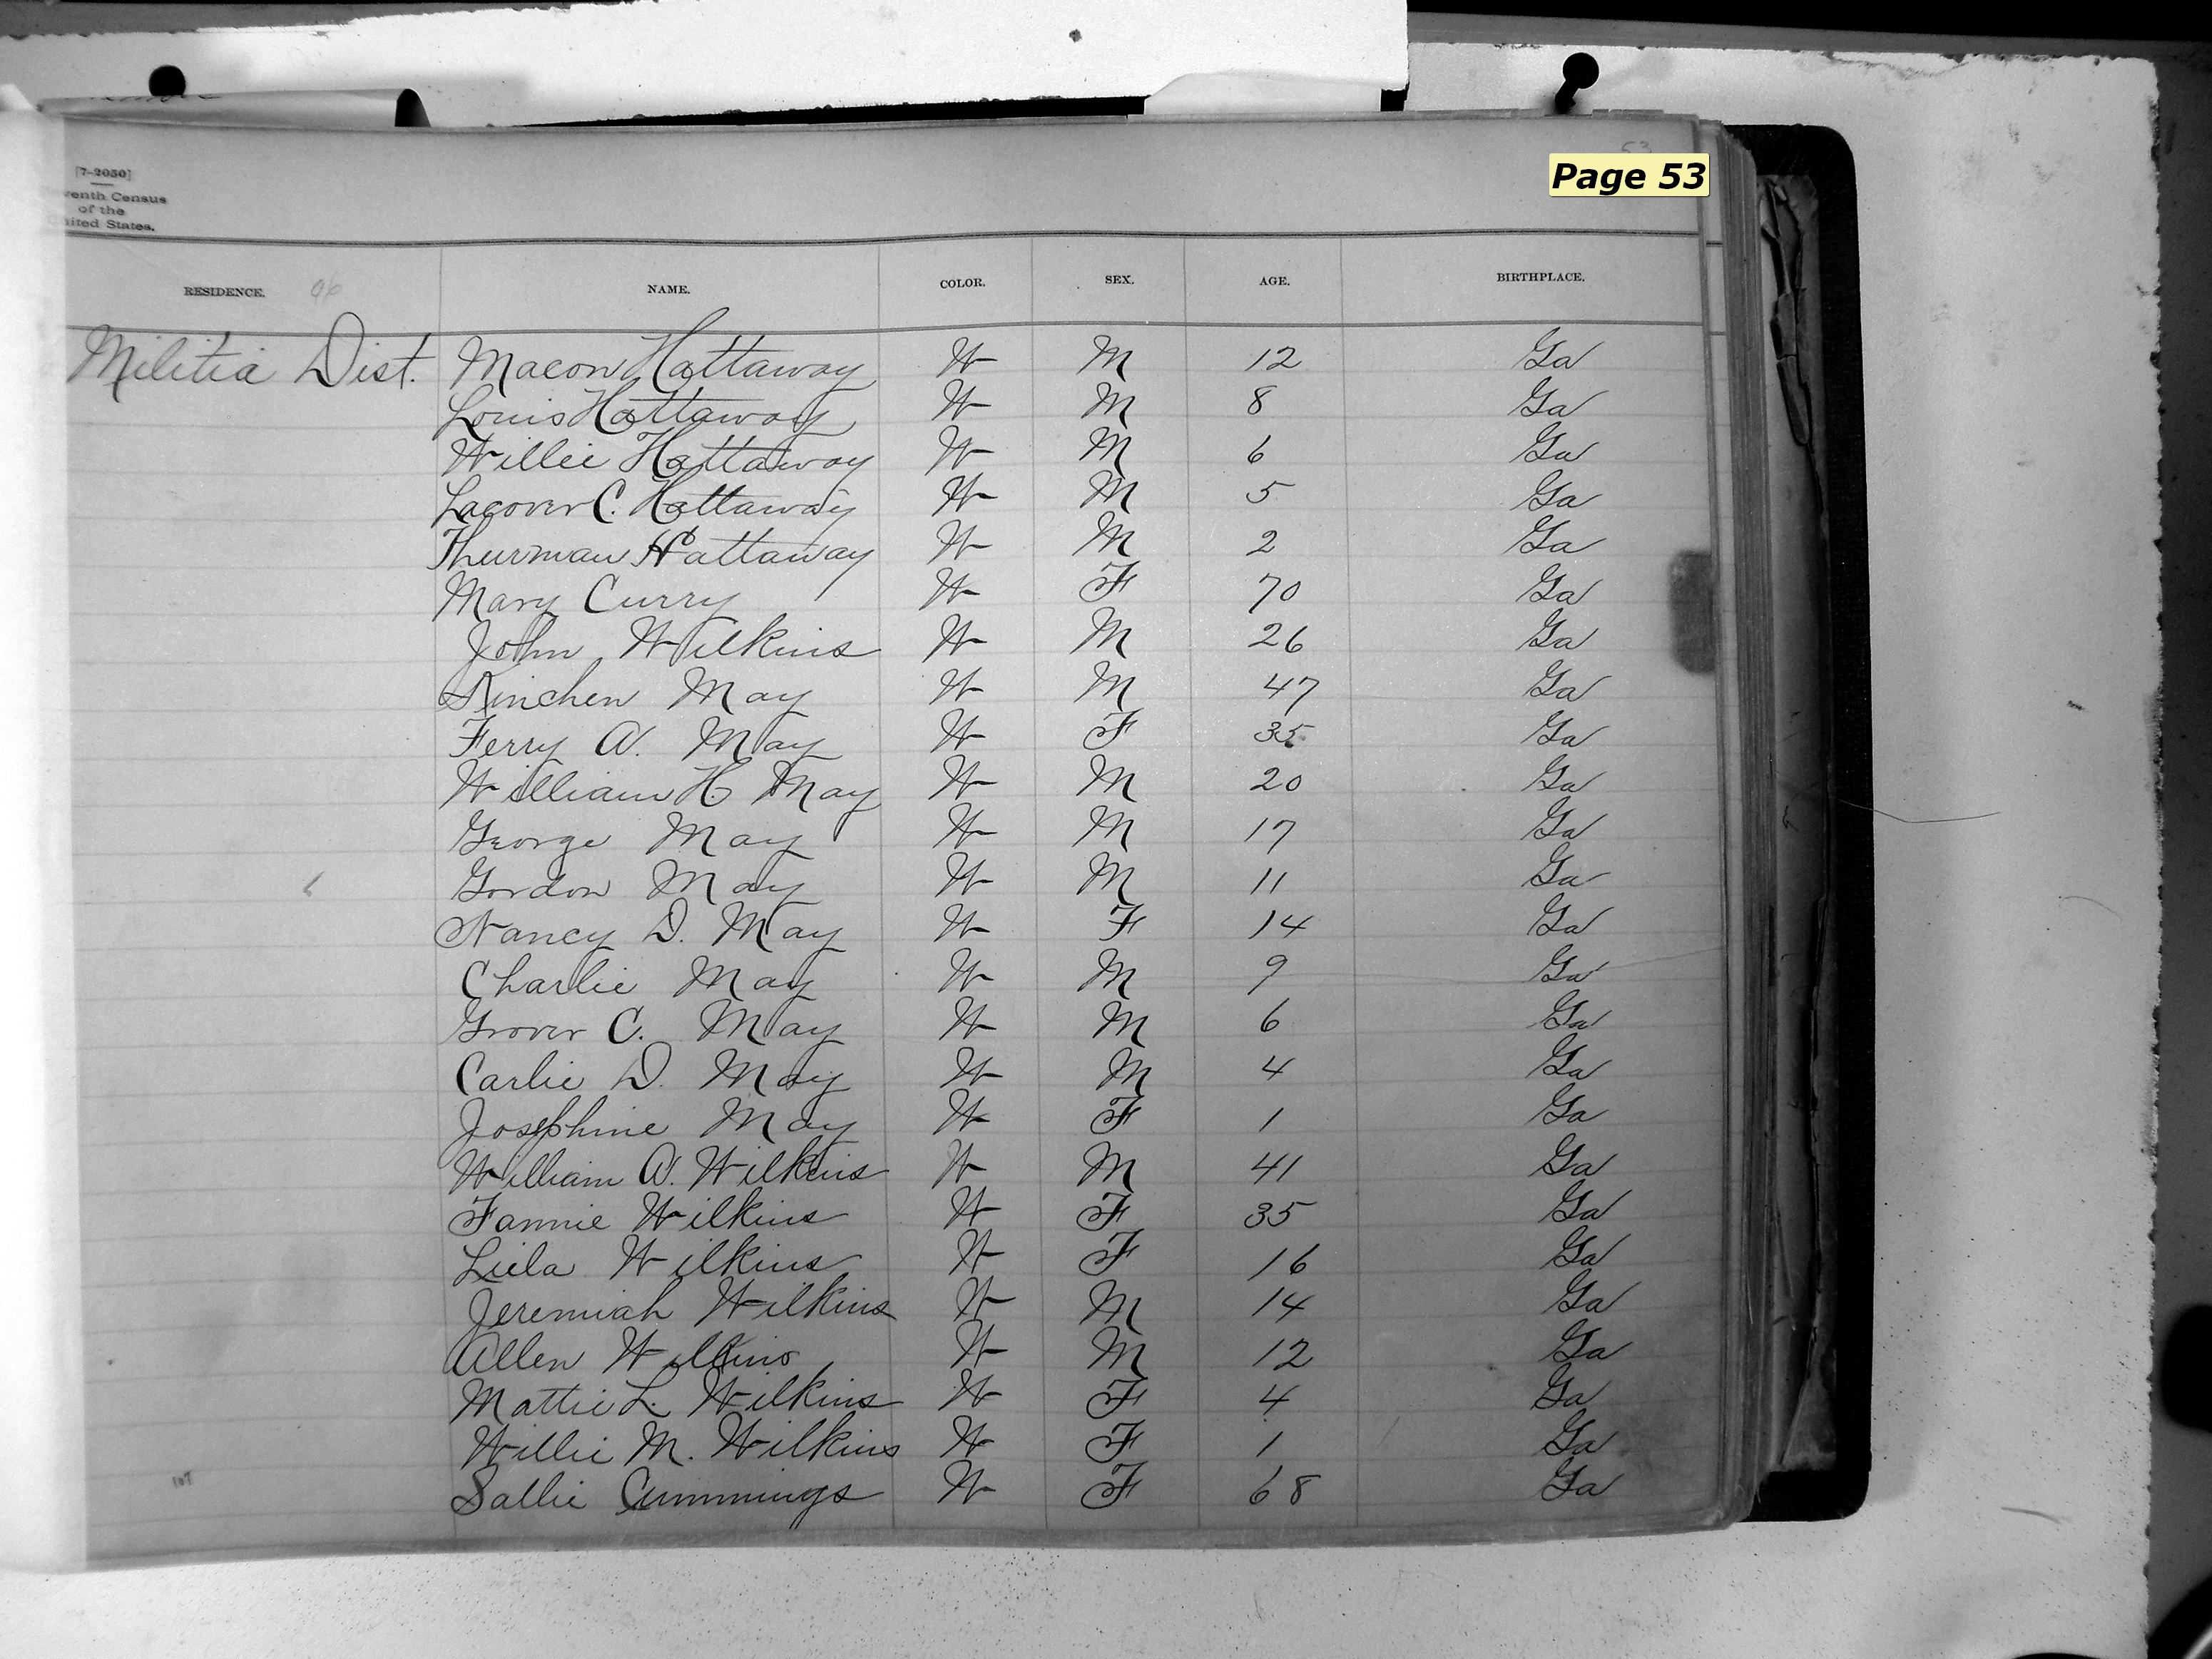 53
Page 53
[7-2050]
venth Census
of the
nited States.
RESIDENCE. NAME. COLOR. SEX. AGE. BIRTHPLACE.
Militia Dist. Macon Hattaway W M 12 Ga
Louis Hattaway W M 8 Ga
Willie Hattaway W M 6 Ga
Lacover C. Hattaway W M 5 Ga
Thurman Hattaway W M 2 Ga
Mary Curry W F 70 Ga
John Wilkins W M 26 Ga
Kinchen May W M 47 Ga
Ferry A. May W F 35 Ga
William H. May W M 20 Ga
George May W M 17 Ga
Gordon May W M 11 Ga
Nancy D. May W F 14 Ga
Charlie May W M 9 Ga
Grover C. May W M 6 Ga
Carlie D. May W M 4 Ga
Josephine May W F 1 Ga
William A. Wilkins W M 41 Ga
Fannie Wilkins W F 35 Ga
Liela Wilkins W F 16 Ga
Jeremiah Wilkins W M 14 Ga
Allen Wilkins W M 12 Ga
Mattie L. Wilkins W F 4 Ga
Willie M. Wilkins W F 1 Ga
Sallie Cummings W F 68 Ga